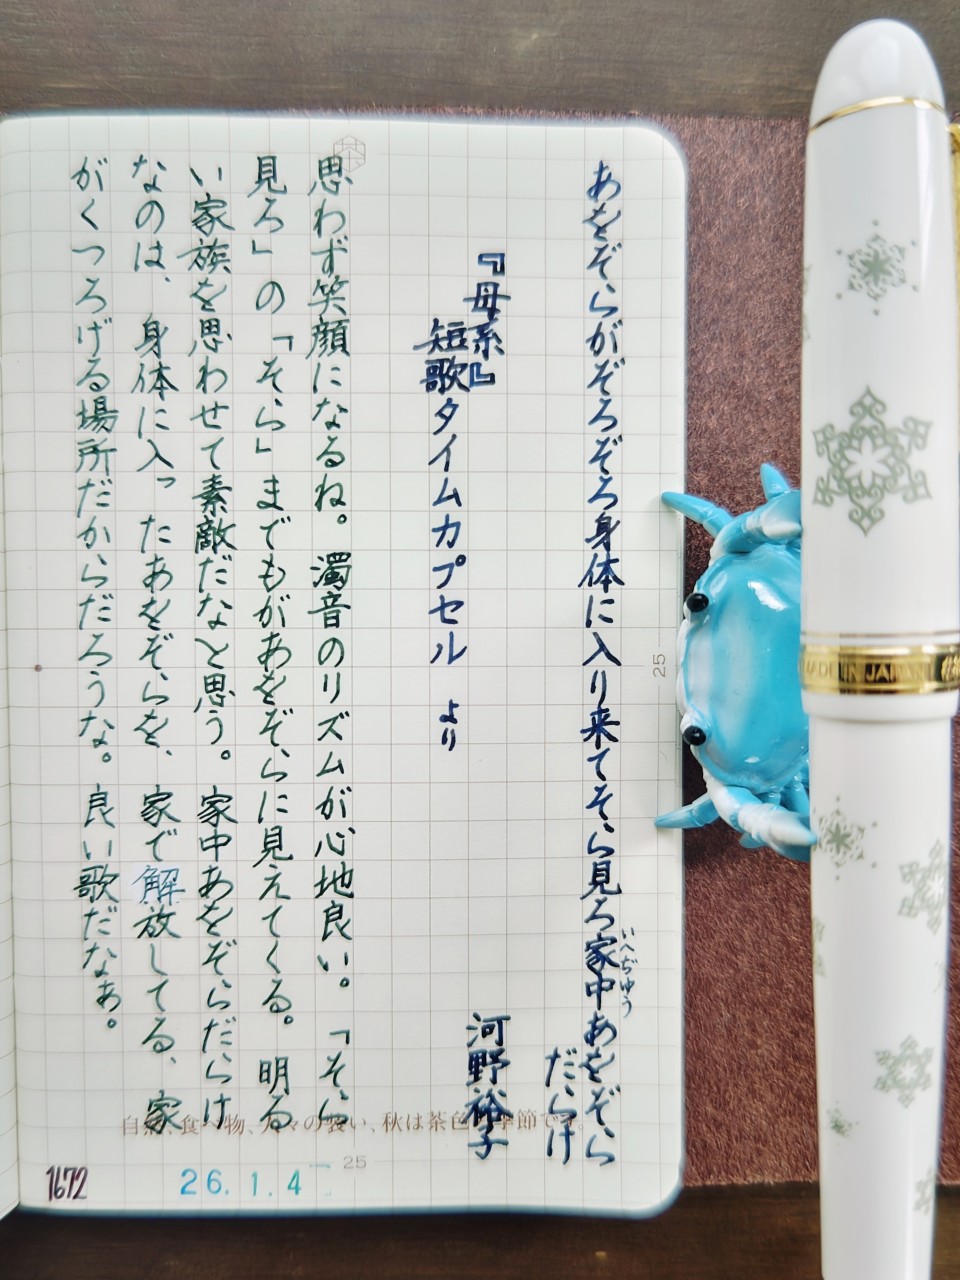 あをぞらがぞろぞろ身体に入り来てそら見ろ家中あをぞら
いへぢゆう
だらけ
『母系』
河野裕子
短歌タイムカプセル より
思わず笑顔になるね。濁音のリズムが心地良い。「そら
見ろ」の「そら」までもがあをぞらに見えてくる。明る
い家族を思わせて素敵だなと思う。家中あをぞらだらけ
なのは、身体に入ったあをぞらを、家で解放してる、家
がくつろげる場所だからだろうな。良い歌だなぁ。
25
25
1672
26.1.4
MADE IN JAPAN